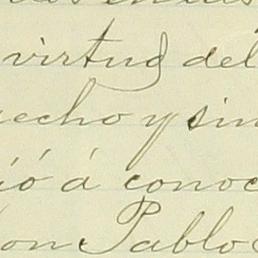 virtud del
echo y sin
ió á conoc
on Pablo